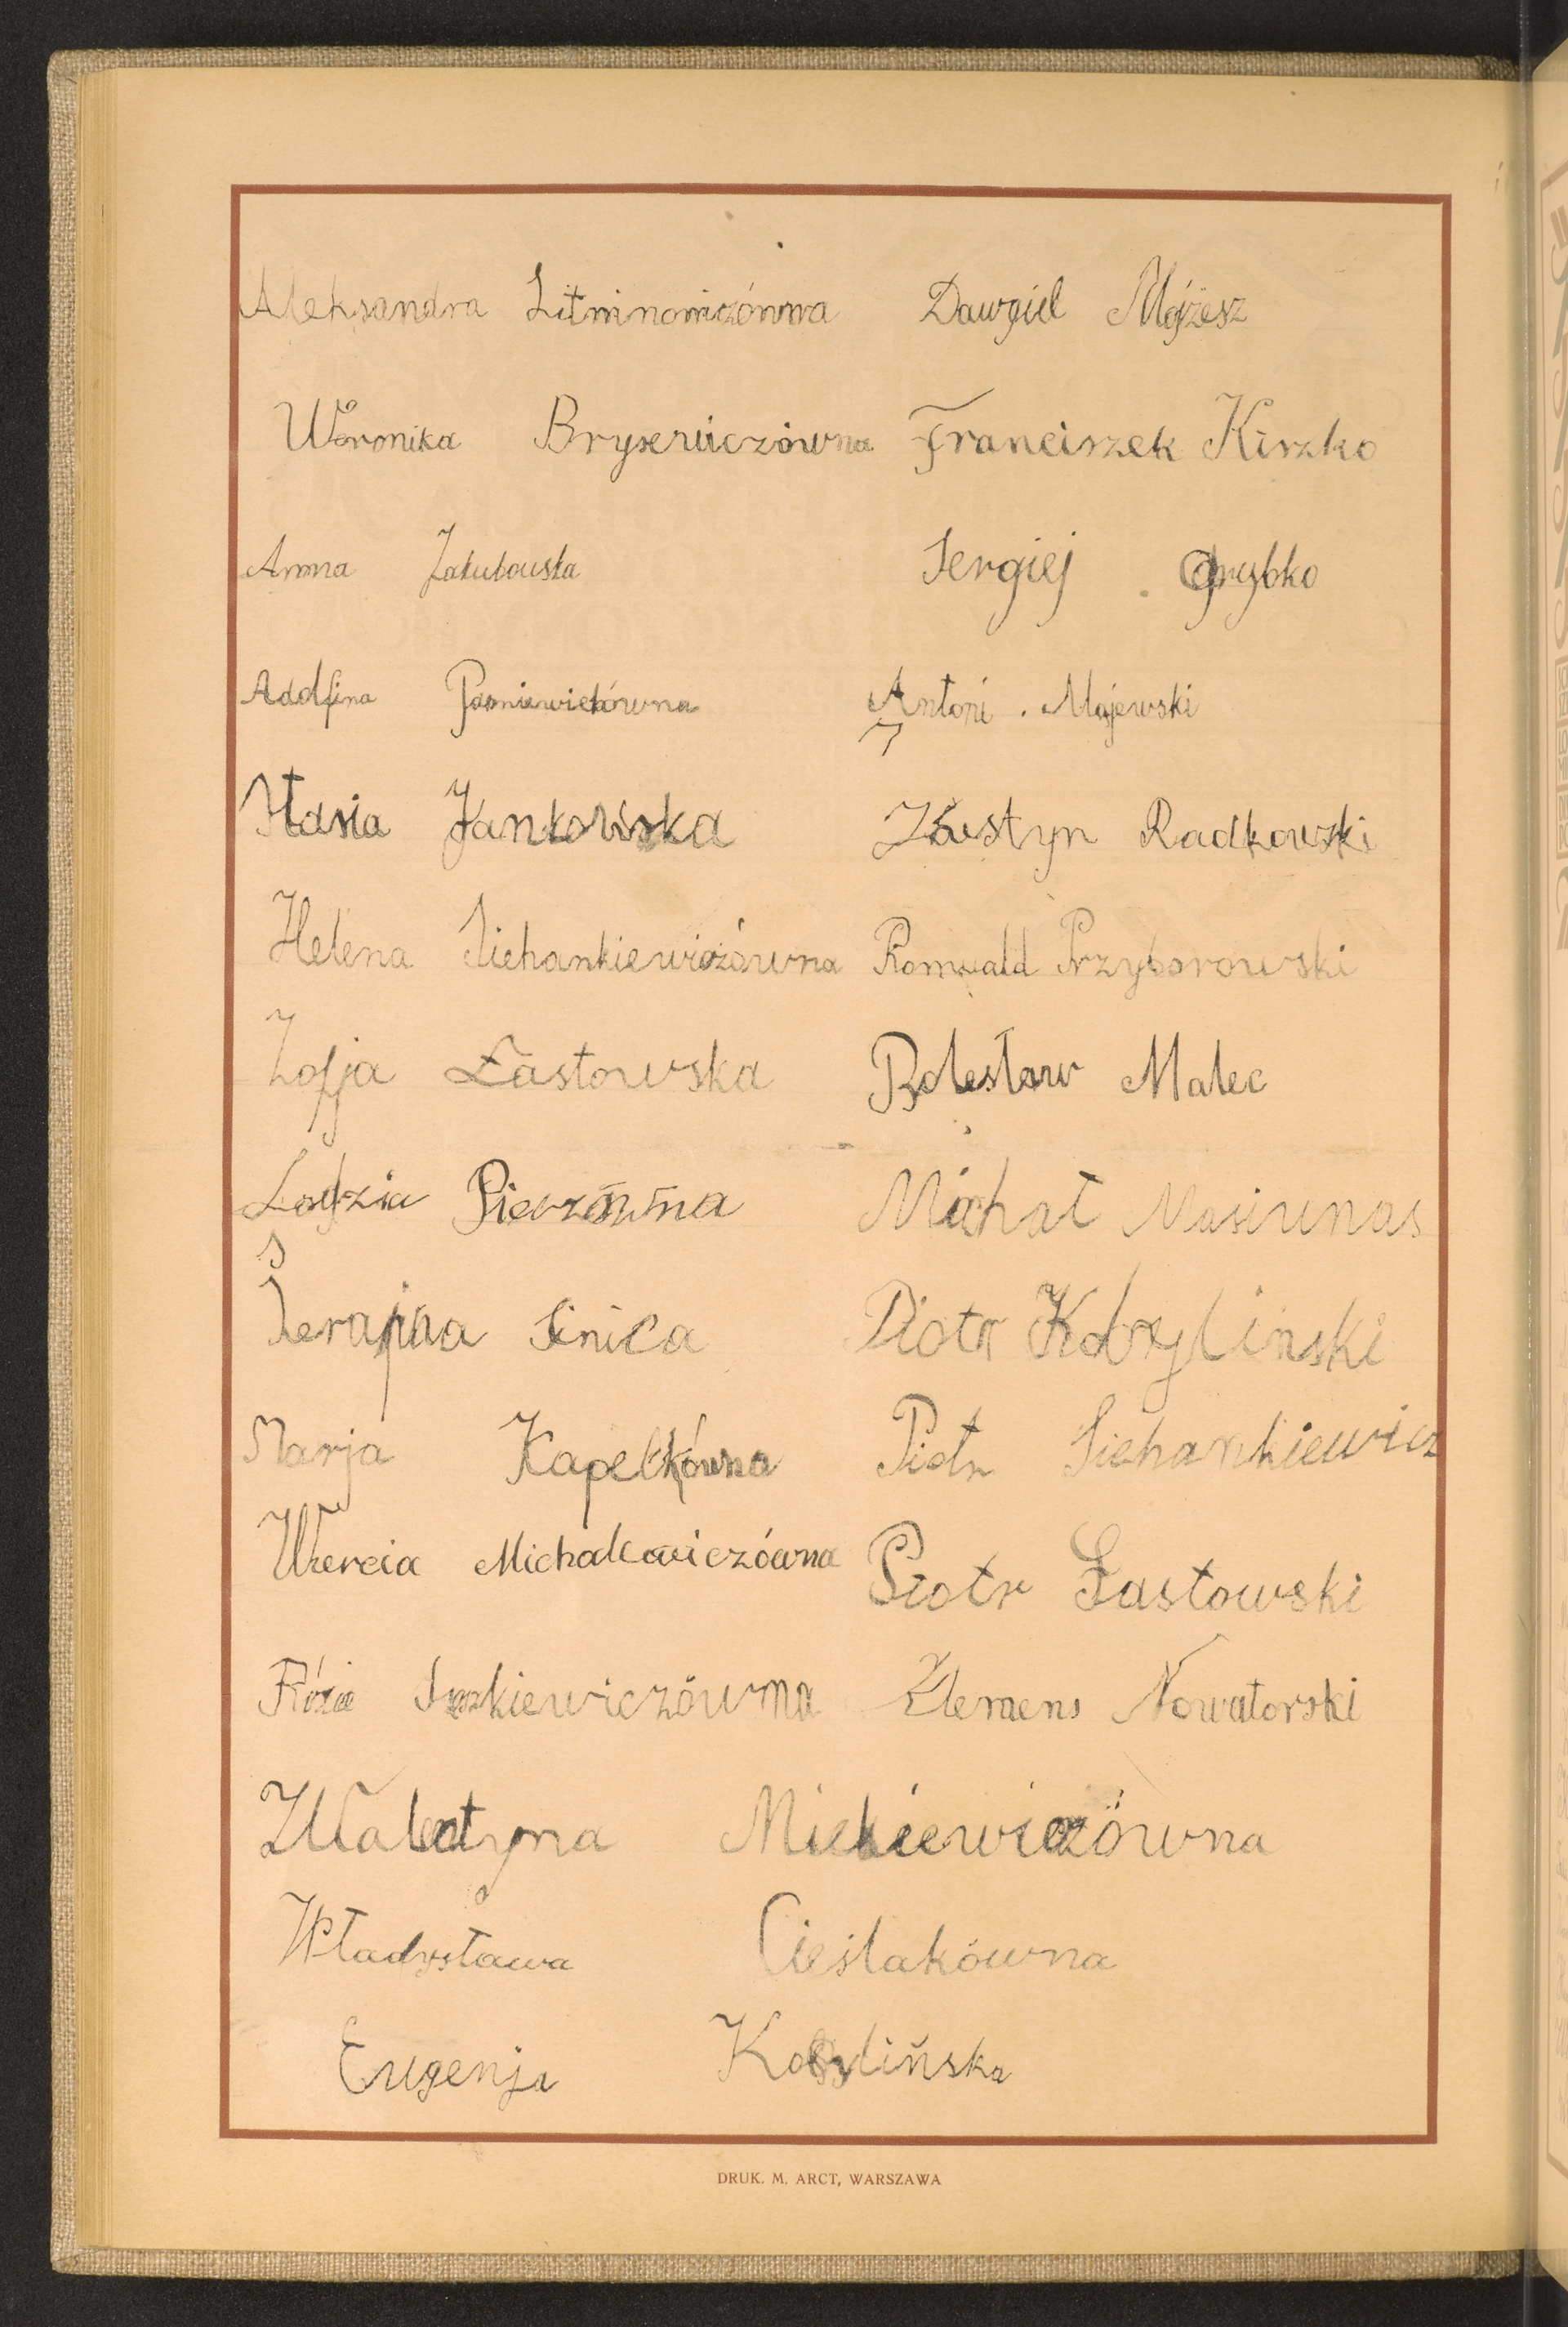 Aleksandra Litwinowiczówna Dawgiel Mojżesz
Weronika Bryzewiczówna Franciszek Kiszko
Anna Jakubowska Sergiej Grybko
Adolfina Antoni Majewski
Stasia Jankowska Justyn Radkowski
Helena Siehankiewiczówna Romuald Przyborowski
Zofja Łastowska Bolesław Malec
Lodzia Michał Masiunas
Serafina Sinica Piotr Kobyliński
Marja Kapelkówna Piotr Siehankiewicz
Wercia Michalewiczówna Piotr Łastowski
Rózia Klemens Nowatorski
Walentyna Mickiewiczówna
Władysława Cieślakówna
Eugenja Kobylińska
DRUK. M. ARCT, WARSZAWA